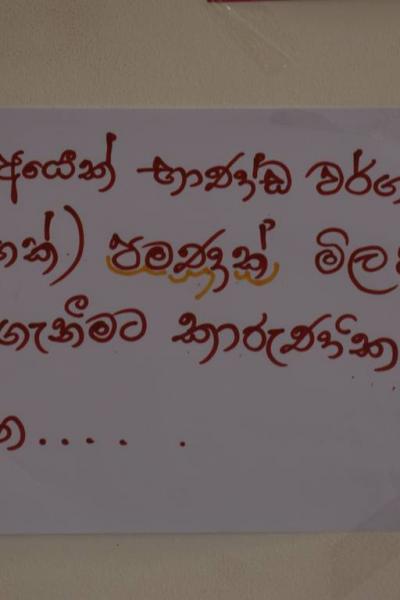 අයෙක් භාණ්ඩ වර්ග
ගක්) පමණක් මිල
ගැනීමට කාරුණික